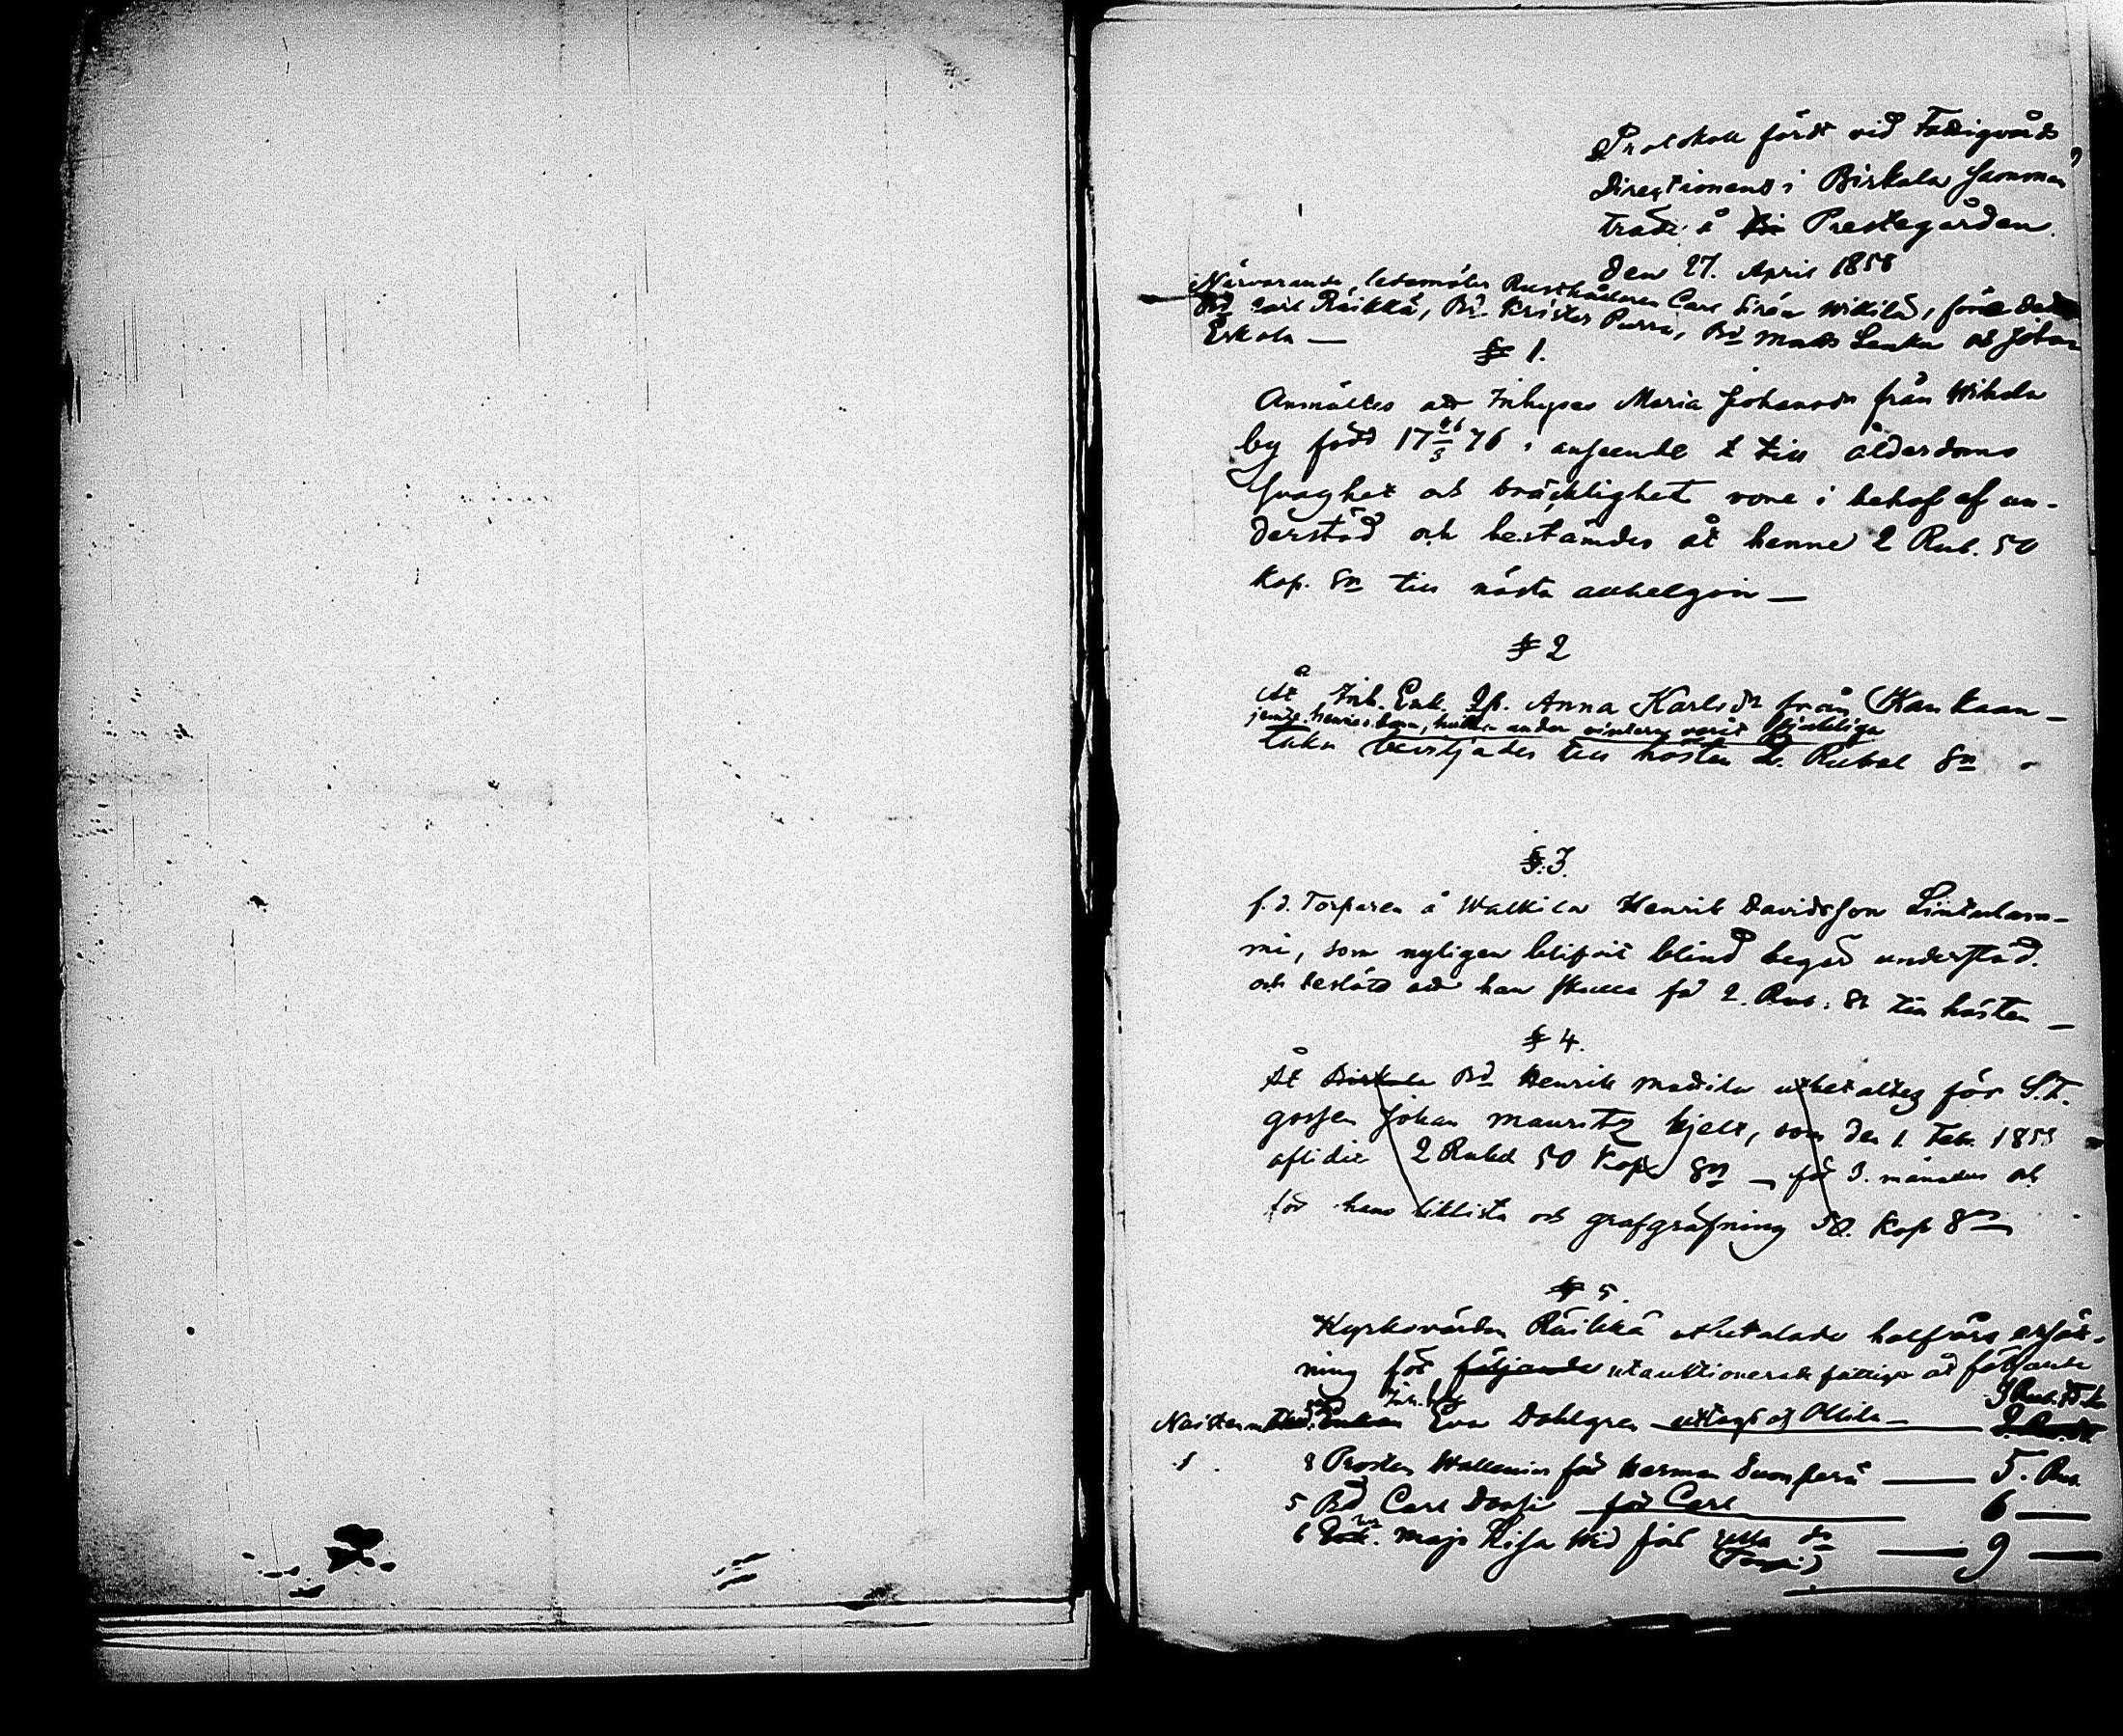 Protokoll fördt vid Fattigvårds
Directionens i Birkala samman
träde å Prestegården
den 27. April 1858
Närvarande, ledamöter Rusthållaren Carl Sirén Wikkilä, före detta
Bd Carl Räikkä, Bd Krister Purra, Bd Matts Lenku och Johan
Eskola —
§ 1.
Anmältes att Inhyses Maria Johansdr från Wihola
by född 17 26/3 76 i anseende t till ålderdoms
svaghet och bräcklighet vore i behof af un-
derstöd och bestämdes åt henne 2 Rub. 50
Kop. Sr till nästa allhelgon —
§ 2
Åt Inh. Enk. Anna Karlsdr från Kankaan-
jemte hennes barn, hvilka under vintern varit sjukliga
taka beviljades till hösten 2. Rubel Sr
§. 3.
f. d. Torparen å Walkila Henrik Davidsson Lintulam-
mi, som nyligen blifvit blind begär understöd.
och beslöts att han skulle få 2. Rub. Sr till hösten —
§ 4.
Åt Birkala Bd Henrik Mattila utbetaltes för S. T.
gossen Johan Mauritz Hjelt, som den 1. Feb. 1858
aflidit 2 Rubel 50 Kop Sr — för 3. månader och
för hans likkista och grafgräfning 50. Kop Sr
§ 5.
Kyrkovärden Räikkä utbetalade halfårs ersätt-
ning för följande utauktionerade fattige åt följande
Eva Dahlgren uttagt af Ollila —
Prosten Wallenius för Herman Suonperä — 5. Rub.
5 Bd Carl Dansi för Carl — 6 —
6 Maja Lisa Wid för Ulla do — 9 —